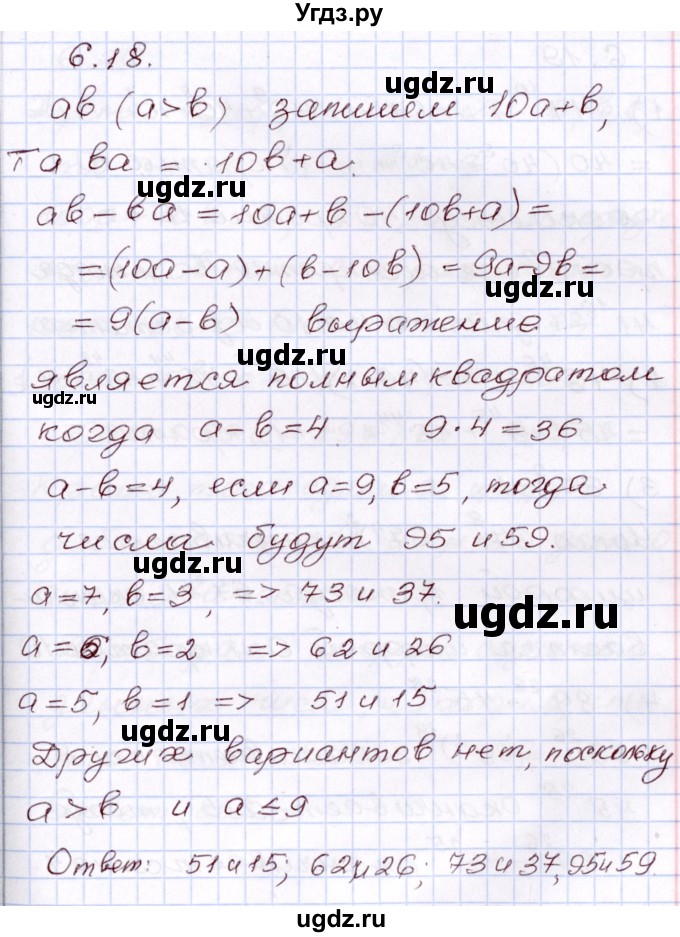 Угдз.ру
6.18.
ав (а>в) запишем 10а+в,
Та ва = 10в+а.
ugdz.ru
ugdz.ru
ав-ва = 10а+в-(10в+а)=
=(10а-а)+(в-10в)=9а-9в=
ugdz.ru
=9(а-в) выражение
ugdz.ru
является полным квадратом
ugdz.ru
когда а-в=4 9·4=36
а-в=4, если а=9, в=5, тогда
ugdz.ru
числа будут 95 и 59.
а=7, в=3, => 73 и 37.
ugdz.ru
а=6, в=2 => 62 и 26
а=5, в=1 => 51 и 15
ugdz.ru
Других вариантов нет, поскольку
а>в и а≤9
ugdz.ru
Ответ: 51и15; 62и26; 73и37, 95и59
ugdz.ru